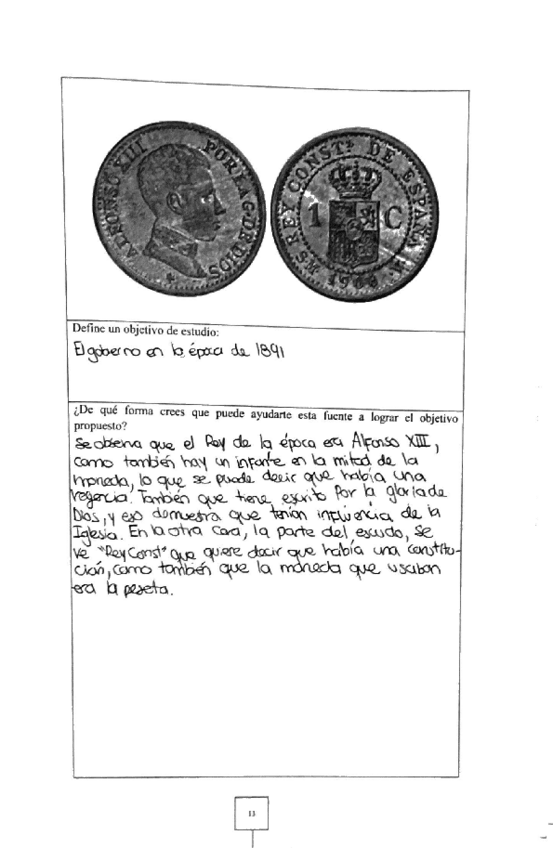 ALFONSO XIII POR LA G. DE DIOS
1 C
M.S REY CONST.L DE ESPAÑA
Define un objetivo de estudio:
El gobierno en la época de 1891
¿De qué forma crees que puede ayudarte esta fuente a lograr el objetivo
propuesto?
Se observa que el Rey de la época era Alfonso XIII,
como también hay un infante en la mitad de la
moneda, lo que se puede decir que había una
regencia. También que tiene escrito Por la gloria de
Dios, y eso demuestra que tenían influencia de la
Iglesia. En la otra cara, la parte del escudo, se
ve "Rey Const" que quiere decir que había una constitu-
ción, como también que la moneda que usaban
era la peseta.